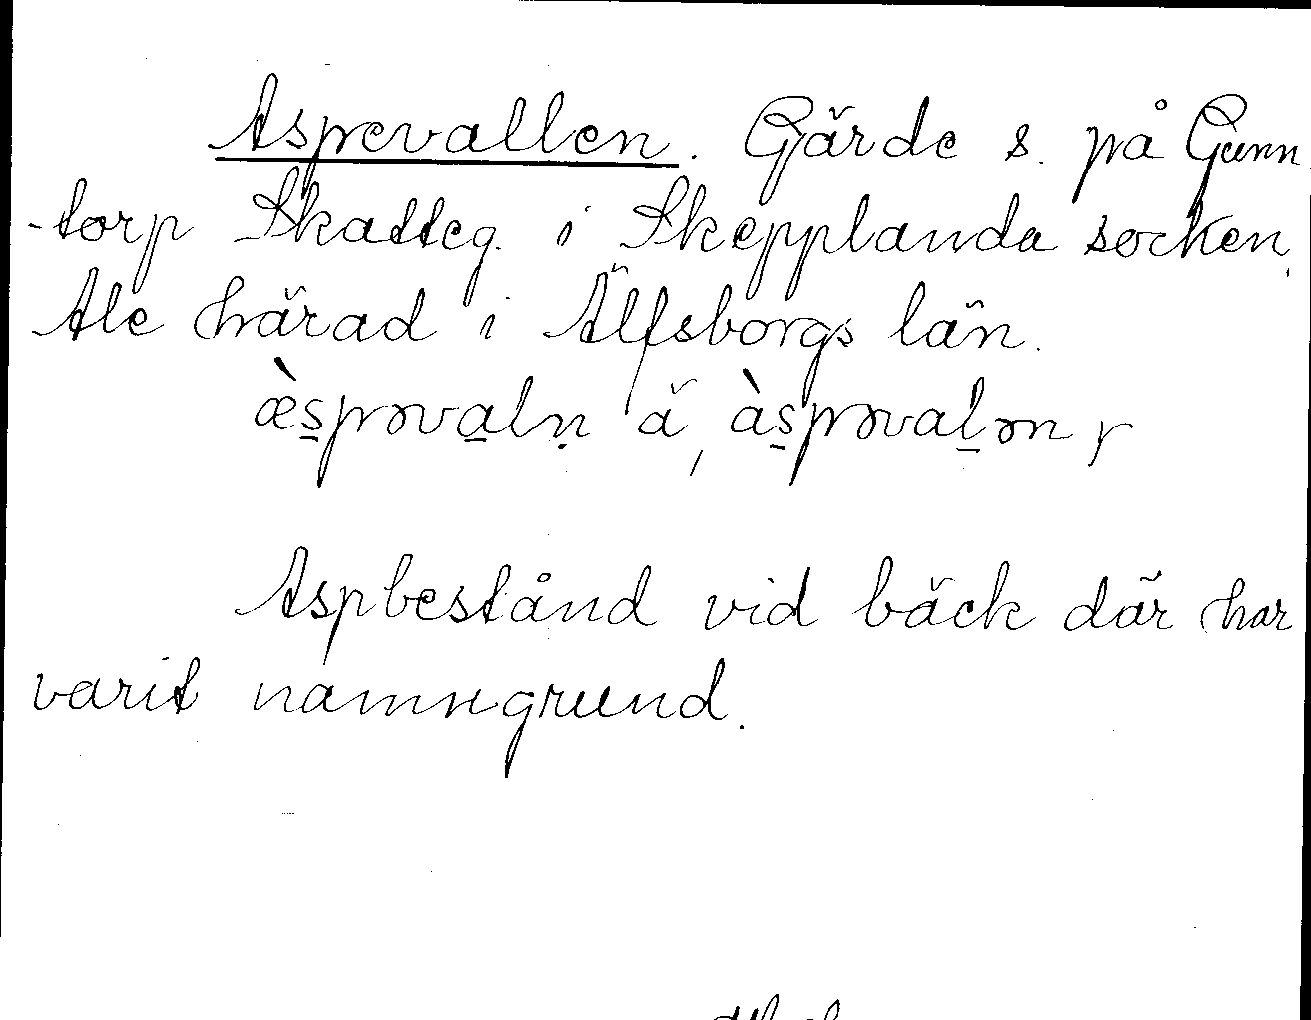 Aspevallen. Gärde s. på Gunn
-torp Skatteg. i Skepplanda socken,
Ale härad i Älfsborgs län.
æ̀s̠pəva̠lṇ ä, às̠pəval̠ən,
Aspbestånd vid bäck där har
varit namngrund.